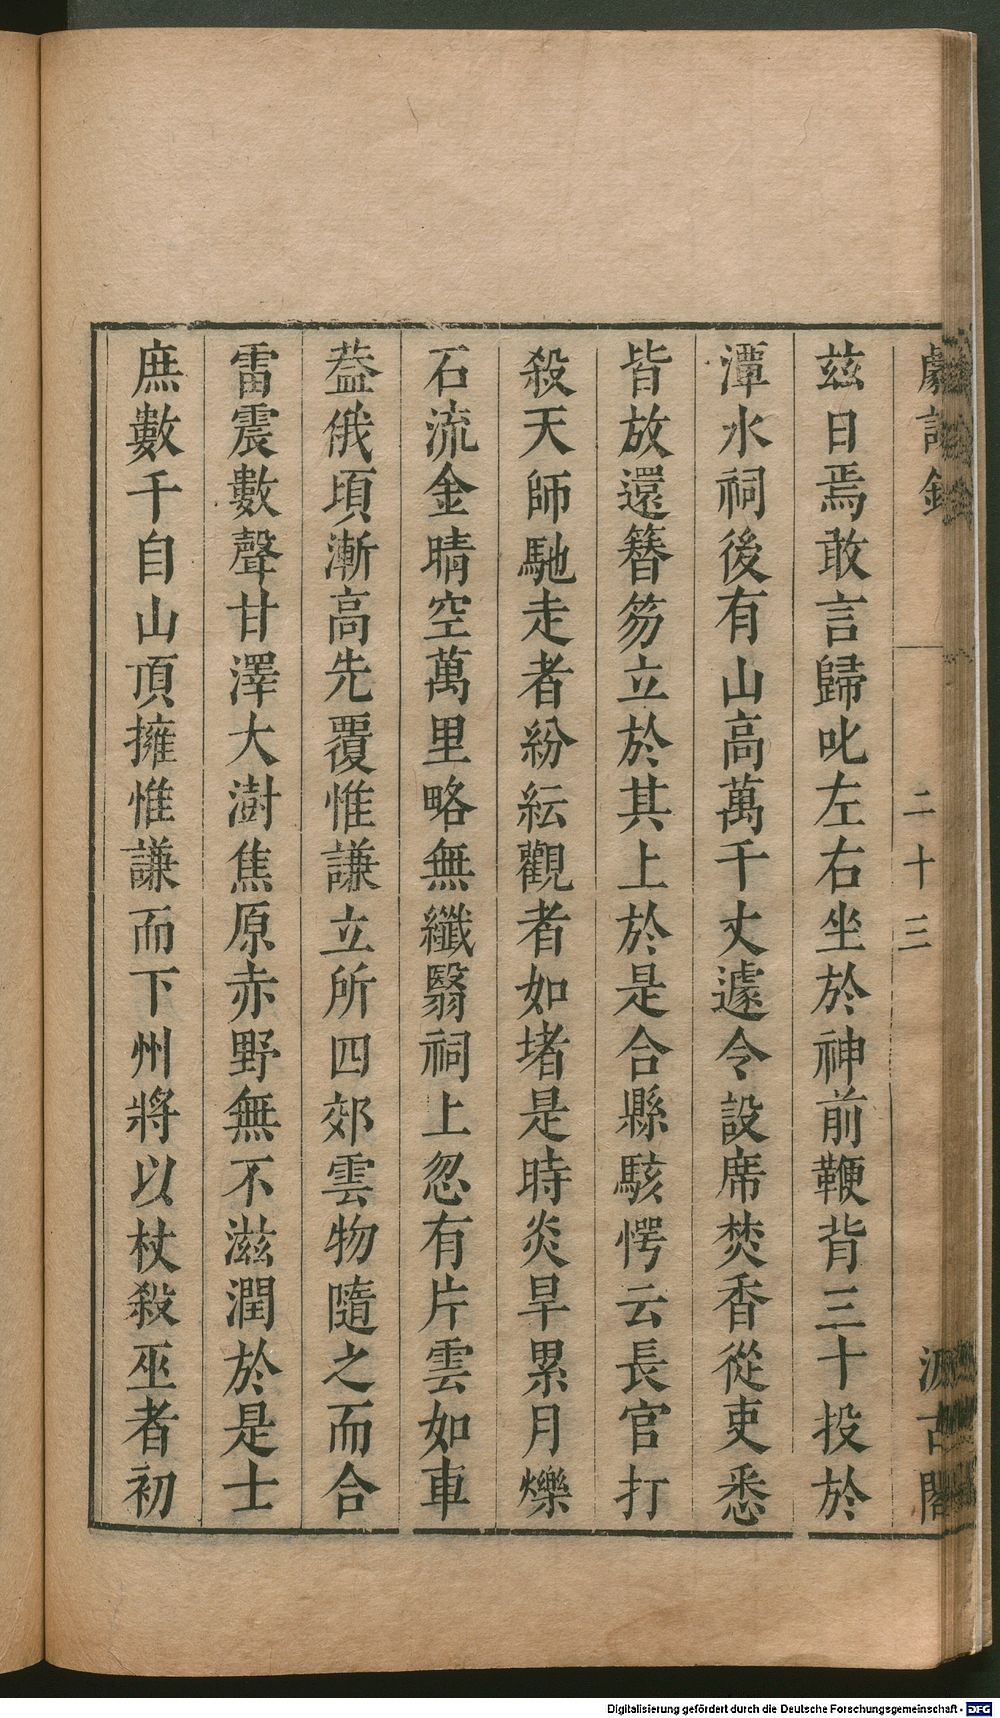 劇談錄
二十三
汲古閣
茲日焉敢言歸叱左右坐於神前鞭背三十投於
潭水祠後有山高萬千丈遽令設席焚香從吏悉
皆放還簪笏立於其上於是合縣駭愕云長官打
殺天師馳走者紛紜觀者如堵是時炎旱累月爍
石流金晴空萬里略無纖翳祠上忽有片雲如車
葢俄頃漸高先覆惟謙立所四郊雲物隨之而合
雷震數聲甘澤大澍焦原赤野無不滋潤於是士
庶數千自山頂擁惟謙而下州將以杖殺巫者初
Digitalisierung gefördert durch die Deutsche Forschungsgemeinschaft - DFG